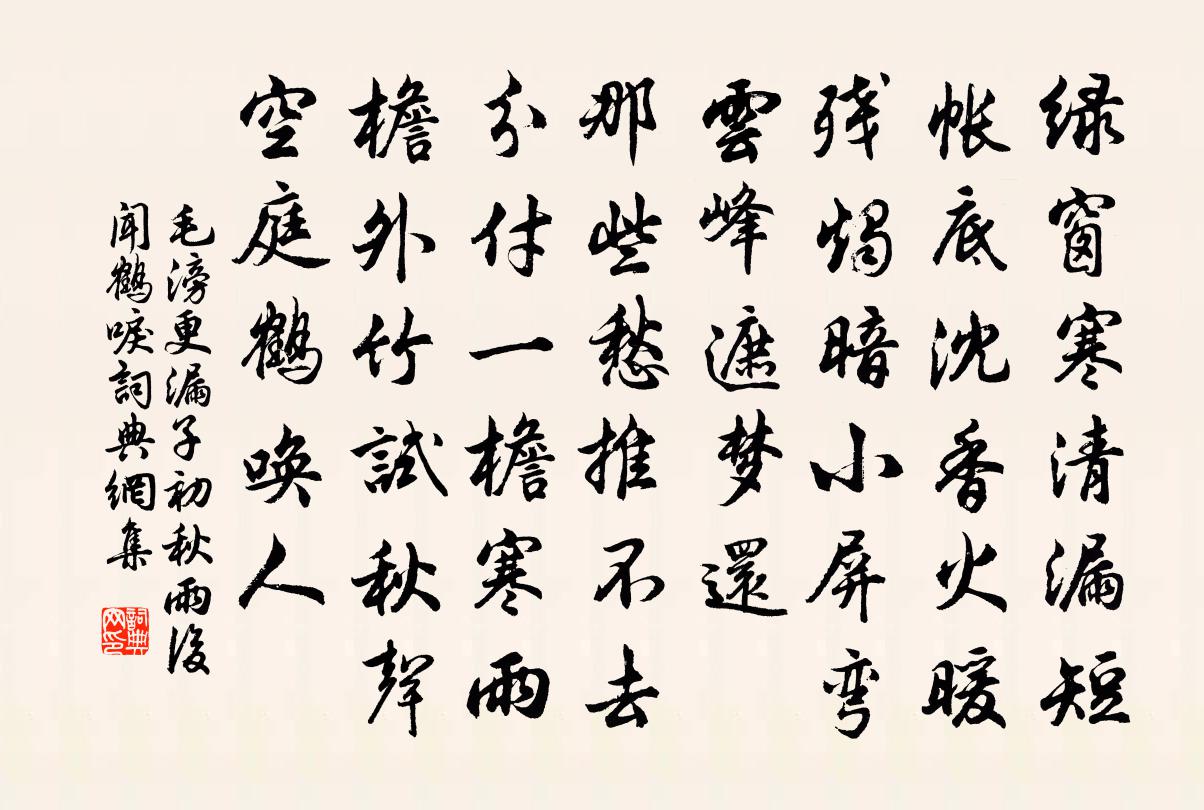 绿窗寒清漏短
帐底沈香火暖
残烛暗小屏弯
雲峰遮梦還
那些愁推不去
分付一檐寒雨
檐外竹試秋聲
空庭鶴唤人
毛滂更漏子初秋雨後
聞鶴唳詞典網集
詞典网印